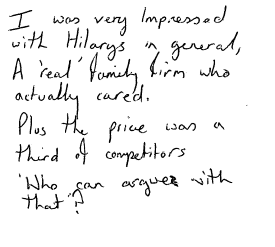 I was very Impressed
with Hilarys in general,
A 'real' family firm who
actually cared.
Plus the price was a
third of competitors
'Who can argue with
that'?